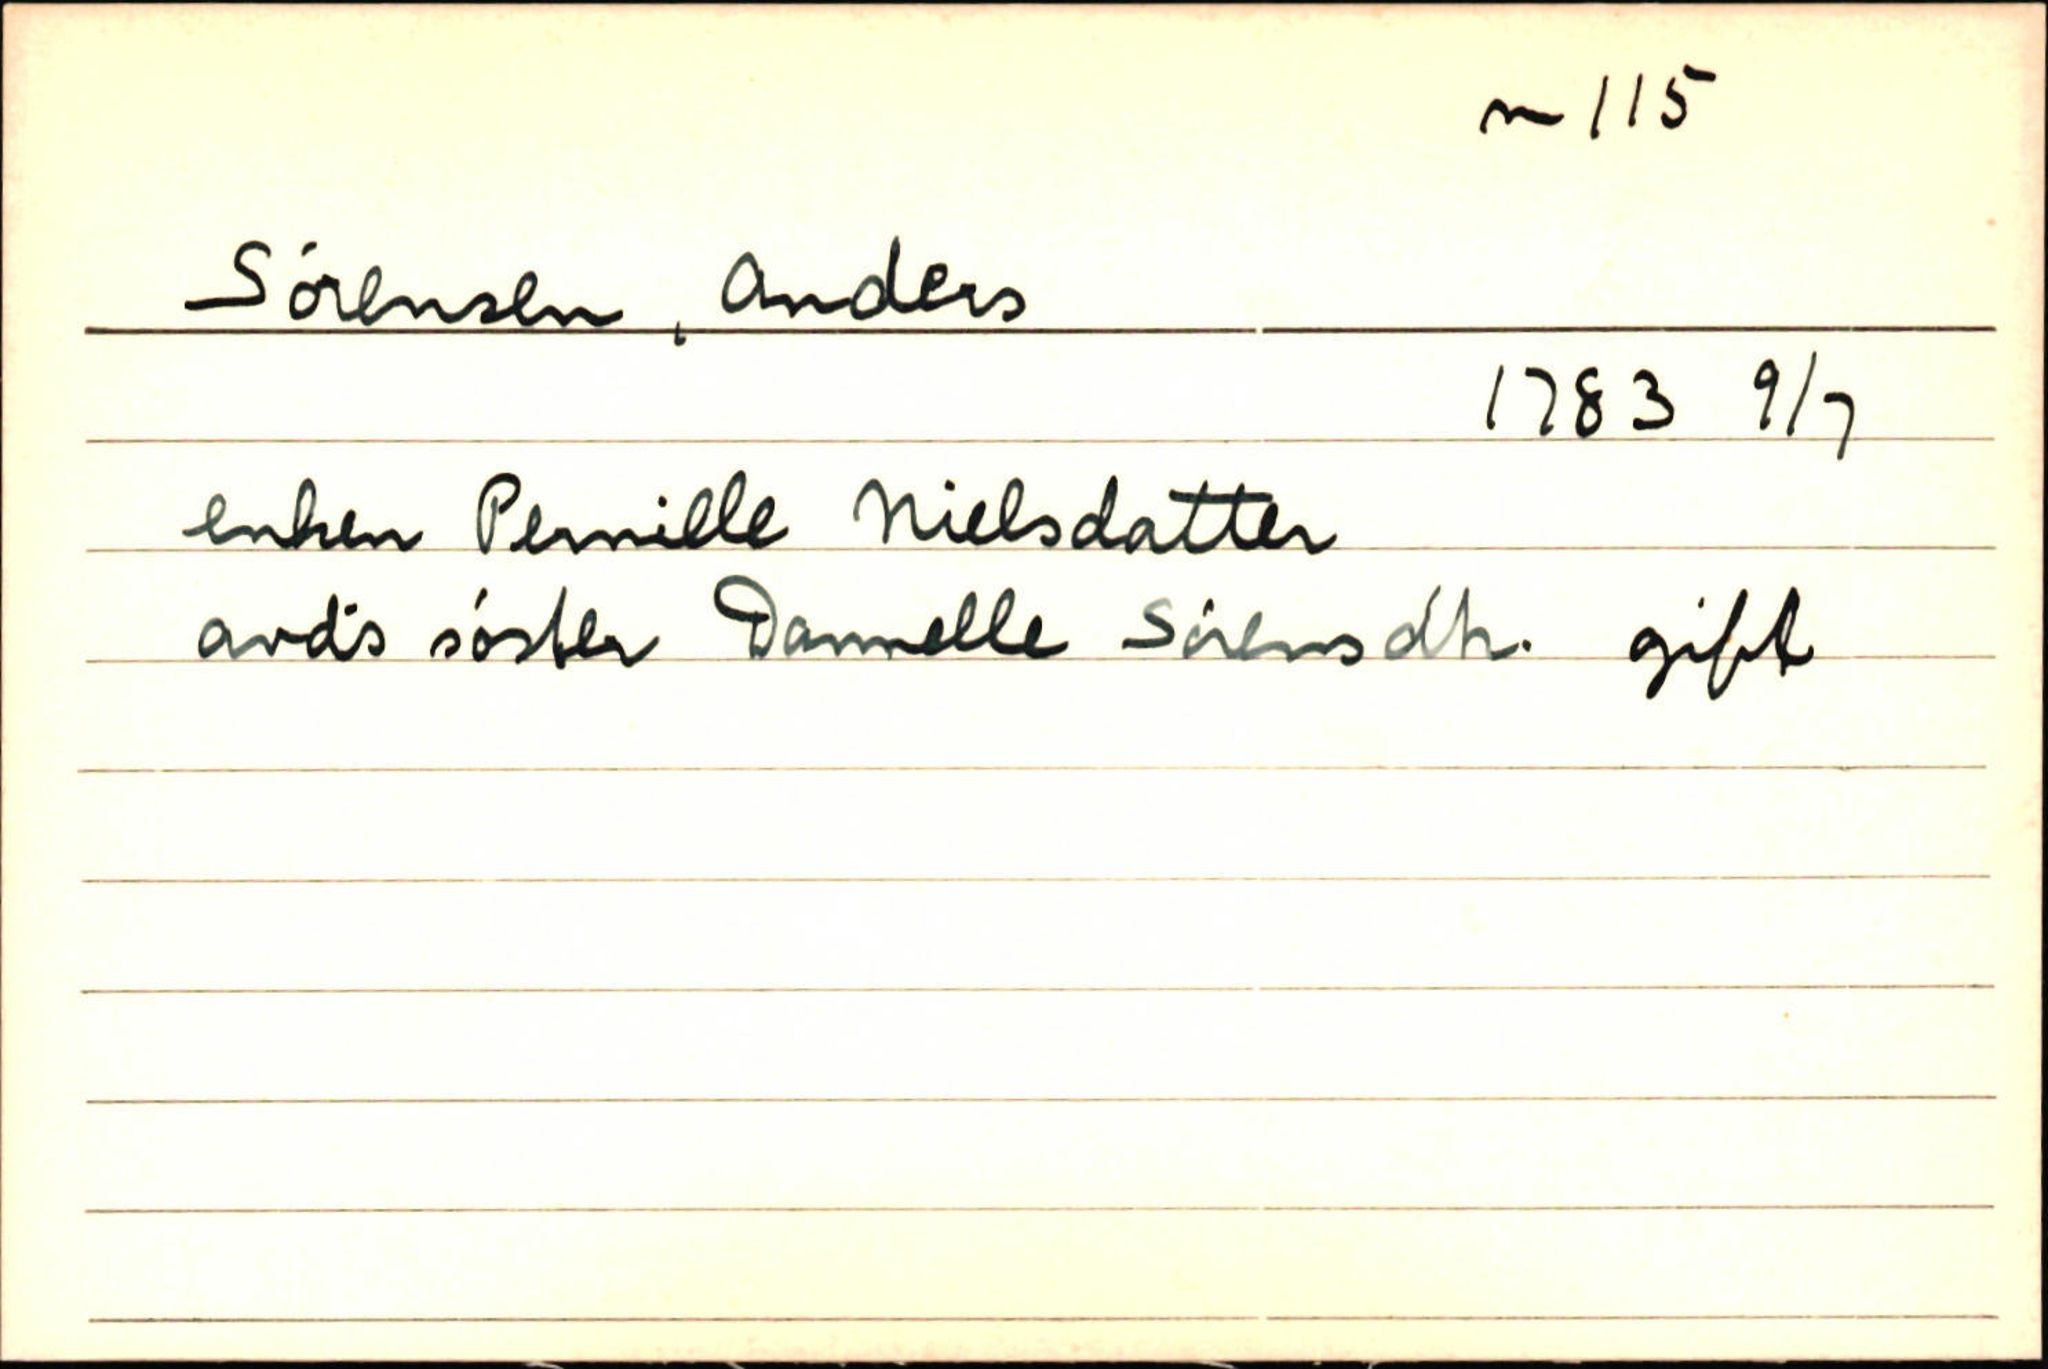 m 115
Sörensen, Anders
1783 9/7
enken Pernille Nielsdatter
avd's söster Dannelle Sörensdtr. gift